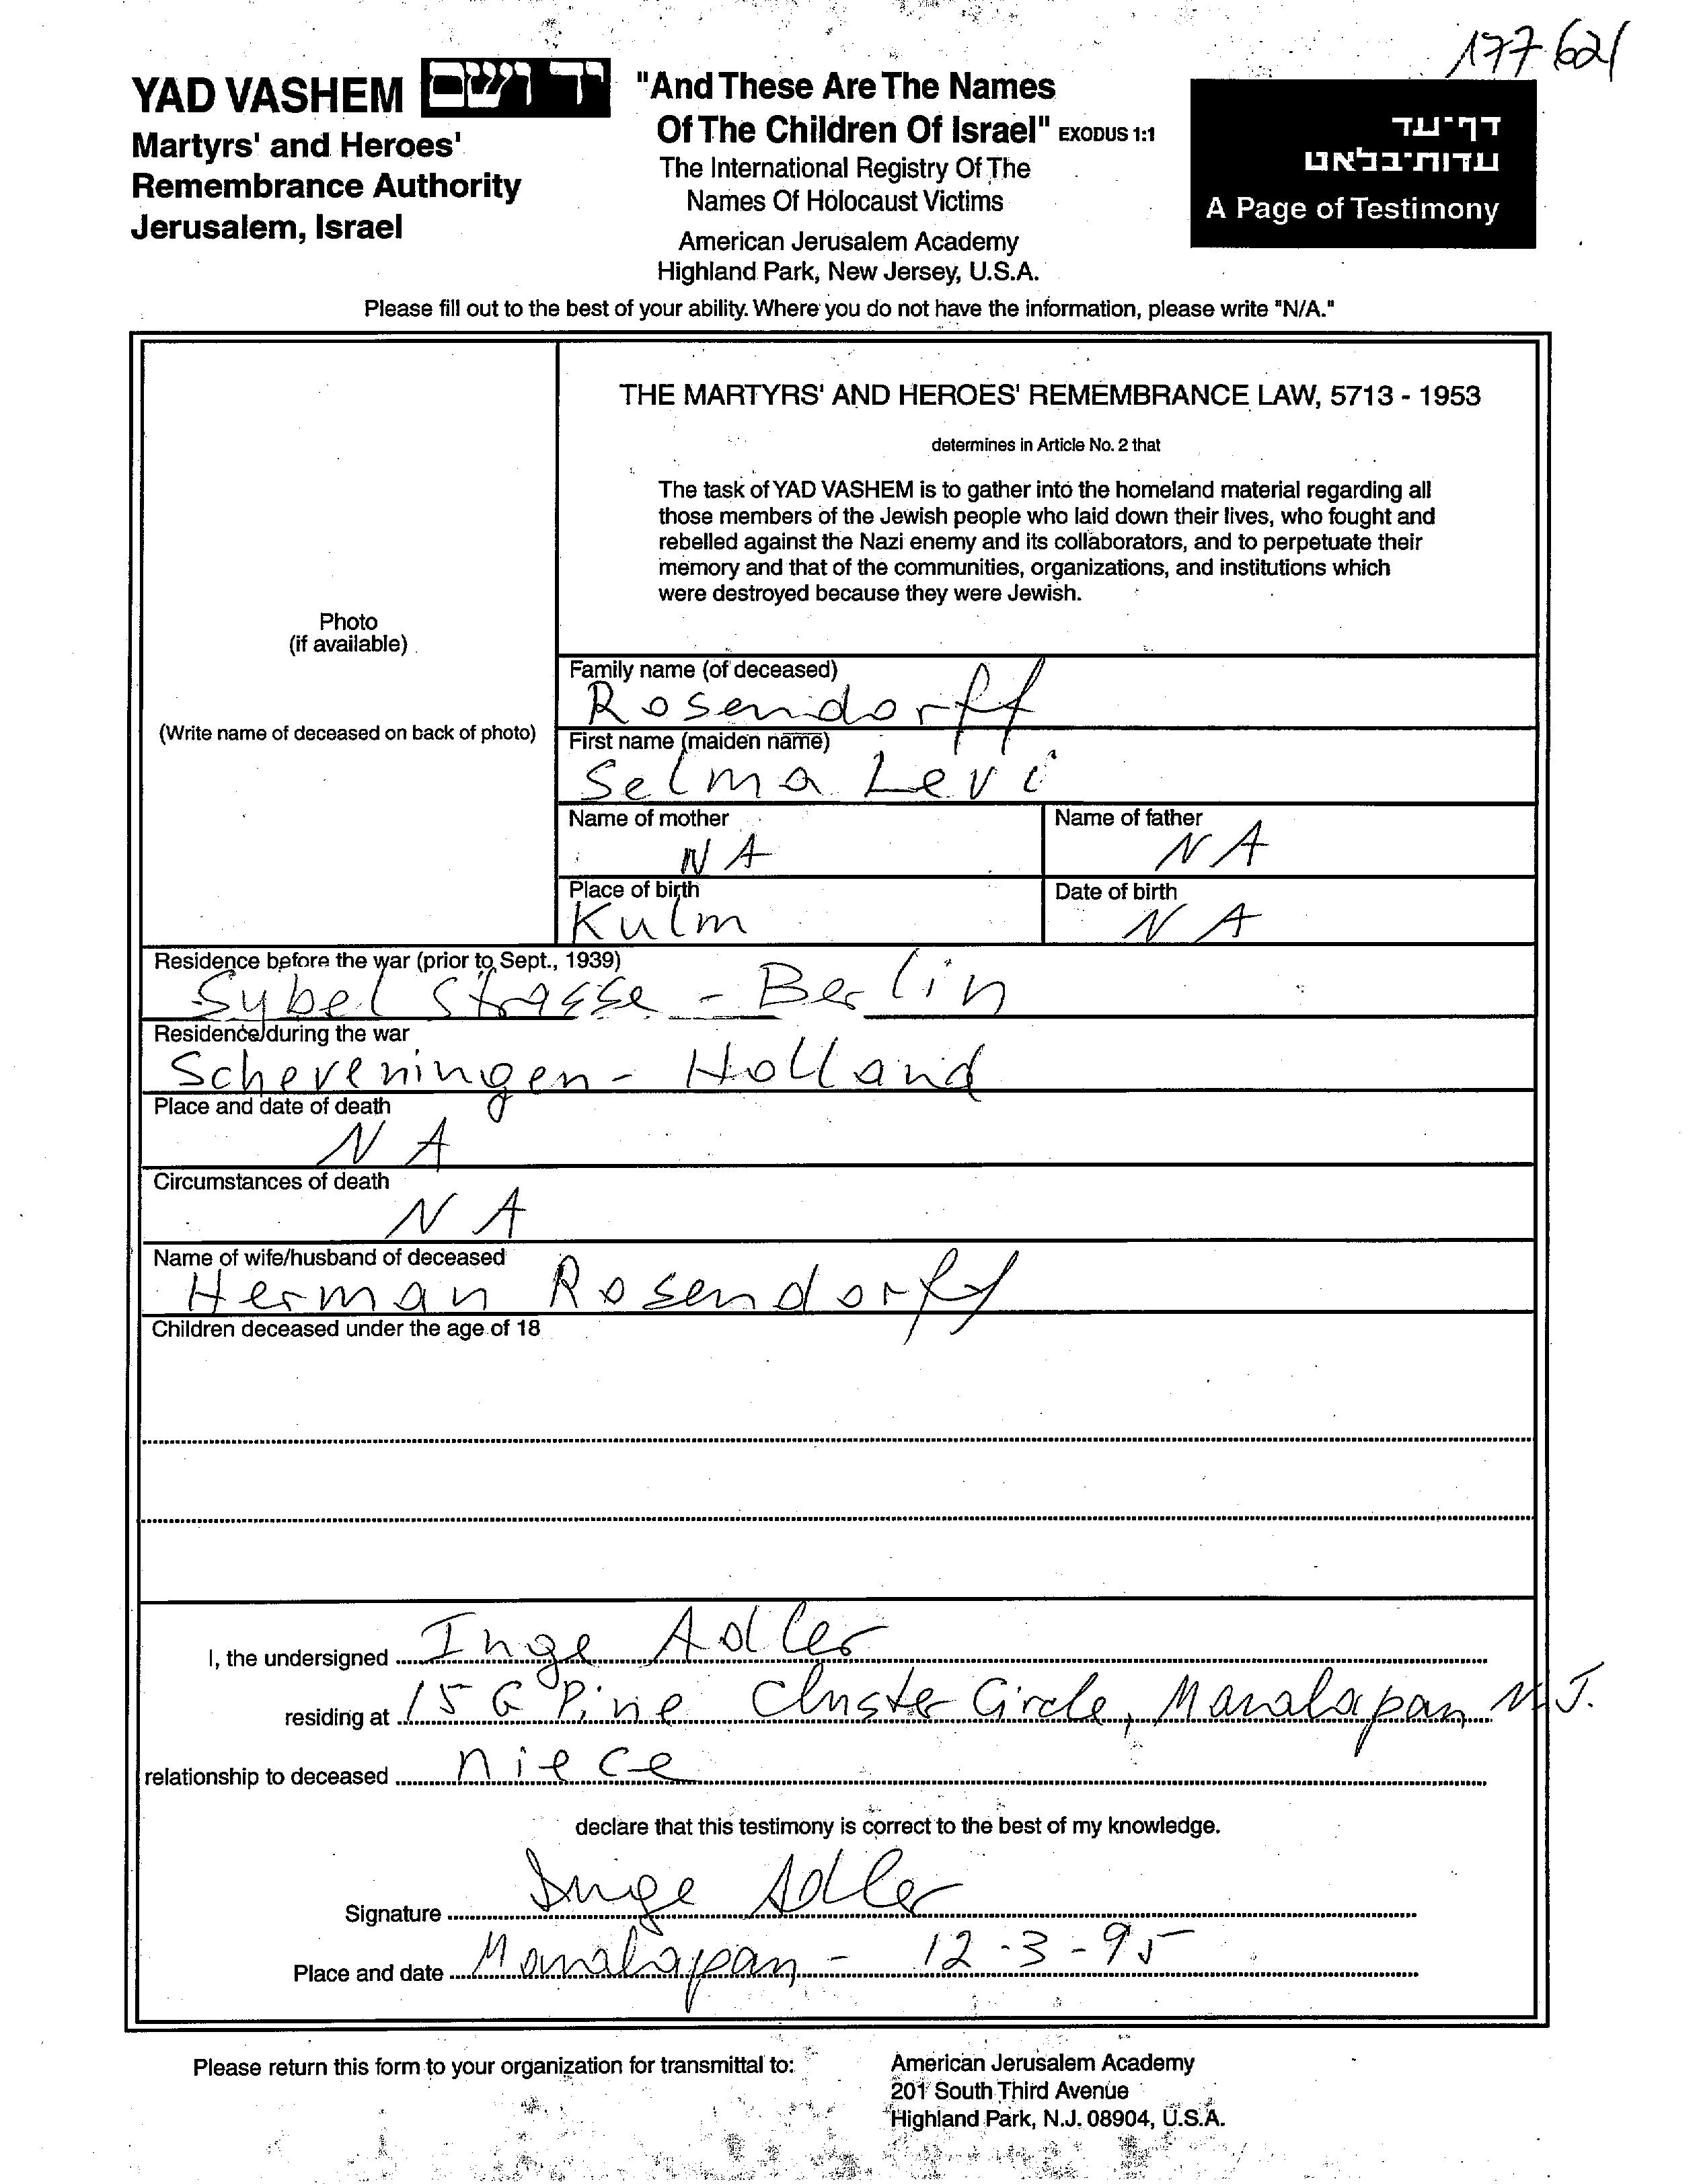 177621
YAD VASHEM יד ושם
Martyrs' and Heroes'
Remembrance Authority
Jerusalem, Israel
"And These Are The Names
Of The Children Of Israel" EXODUS 1:1
The International Registry Of The
Names Of Holocaust Victims
American Jerusalem Academy
Highland Park, New Jersey, U.S.A.
דף־עד
עדות־בלאט
A Page of Testimony
Please fill out to the best of your ability. Where you do not have the information, please write "N/A."
THE MARTYRS' AND HEROES' REMEMBRANCE LAW, 5713 - 1953
determines in Article No. 2 that
The task of YAD VASHEM is to gather into the homeland material regarding all
those members of the Jewish people who laid down their lives, who fought and
rebelled against the Nazi enemy and its collaborators, and to perpetuate their
memory and that of the communities, organizations, and institutions which
were destroyed because they were Jewish.
Photo
(if available)
(Write name of deceased on back of photo)
Family name (of deceased)
Rosendorff
First name (maiden name)
Selma Levi
Name of mother
NA
Name of father
NA
Place of birth
Kulm
Date of birth
NA
Residence before the war (prior to Sept., 1939)
Sybel Strasse - Berlin
Residence during the war
Scheveningen - Holland
Place and date of death
NA
Circumstances of death
NA
Name of wife/husband of deceased
Herman Rosendorff
Children deceased under the age of 18
I, the undersigned Inge Adler
residing at 15 G Pine Cluster Circle, Manalapan N.J.
relationship to deceased niece
declare that this testimony is correct to the best of my knowledge.
Signature Inge Adler
Place and date Manalapan - 12-3-95
Please return this form to your organization for transmittal to:
American Jerusalem Academy
201 South Third Avenue
Highland Park, N.J. 08904, U.S.A.